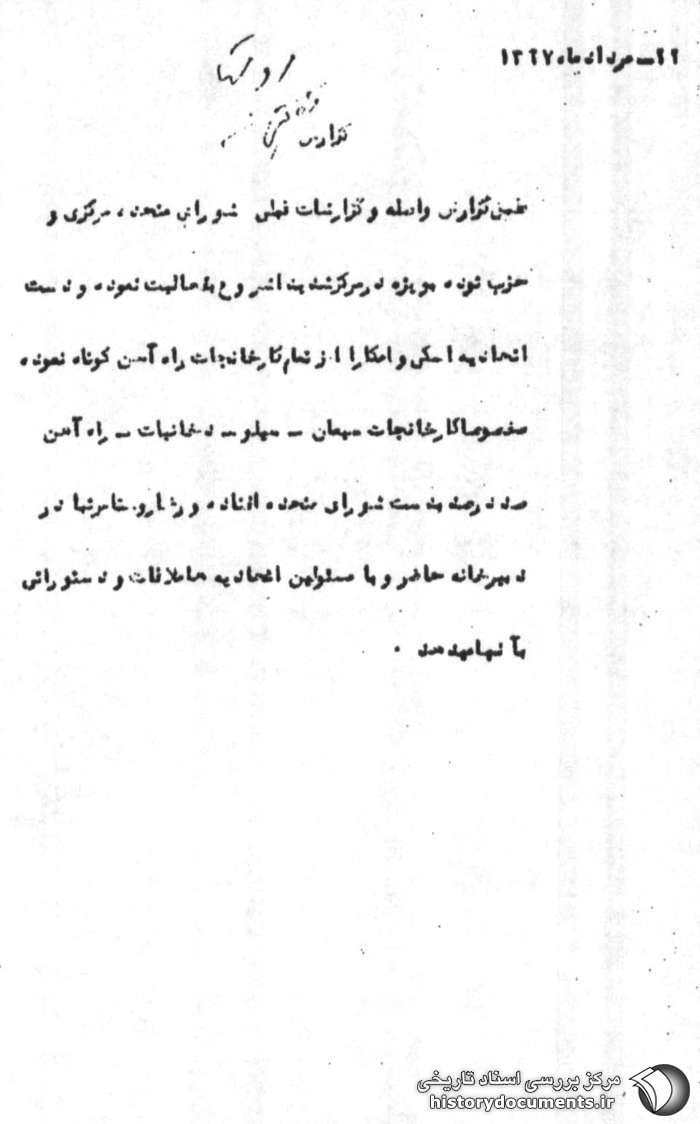 ۲۲ـ مرداد ماه ۱۳۲۷
گزارش
ضمن گزارش واصله و گزارشات قبلی شورای متحده مرکزی و
حزب توده بویژه در مرکز شدیدا شروع بفعالیت نموده و دست
اتحادیه اسکی و امکا را از تمام کارخانجات راه آهن کوتاه نموده
مخصوصا کارخانجات سیمان ـ سیلو ـ دخانیات ـ راه آهن
صد درصد بدست شورای متحده افتاده و رضا روستا مرتبا در
دبیرخانه حاضر و با مسئولین اتحادیه ها ملاقات و دستوراتی
بآنها میدهد .
مرکز بررسی اسناد تاریخی
historydocuments.ir